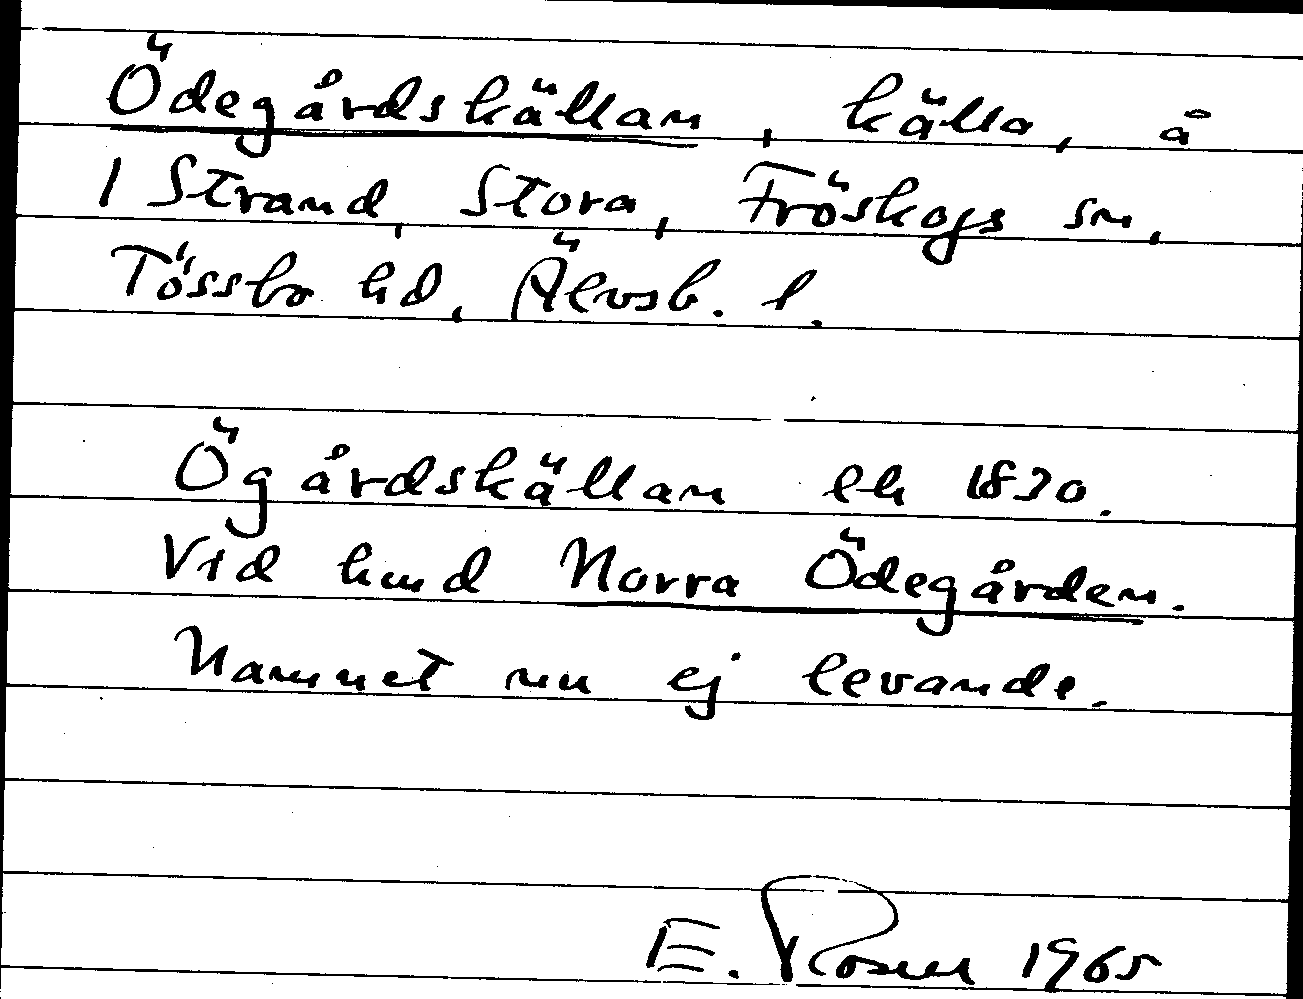 Ödegårdskällan, källa, å
1 Strand, Stora, Fröskogs sn,
Tössbo hd, Älvsb. l.
Ögårdskällan ek 1830.
Vid hmd Norra Ödegården.
Namnet nu ej levande.
E. Rosell 1965